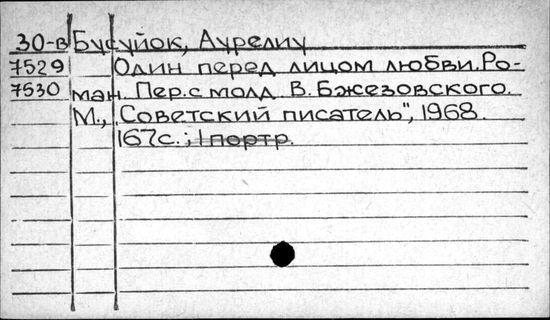 30-в Бусуйок, Аурелиу
7529 Один перед лицом любви. Ро-
7530 ман. Пер. с молд. В. Бжезовского.
М., „Советский писатель", 1968.
167с.; 1 портр.